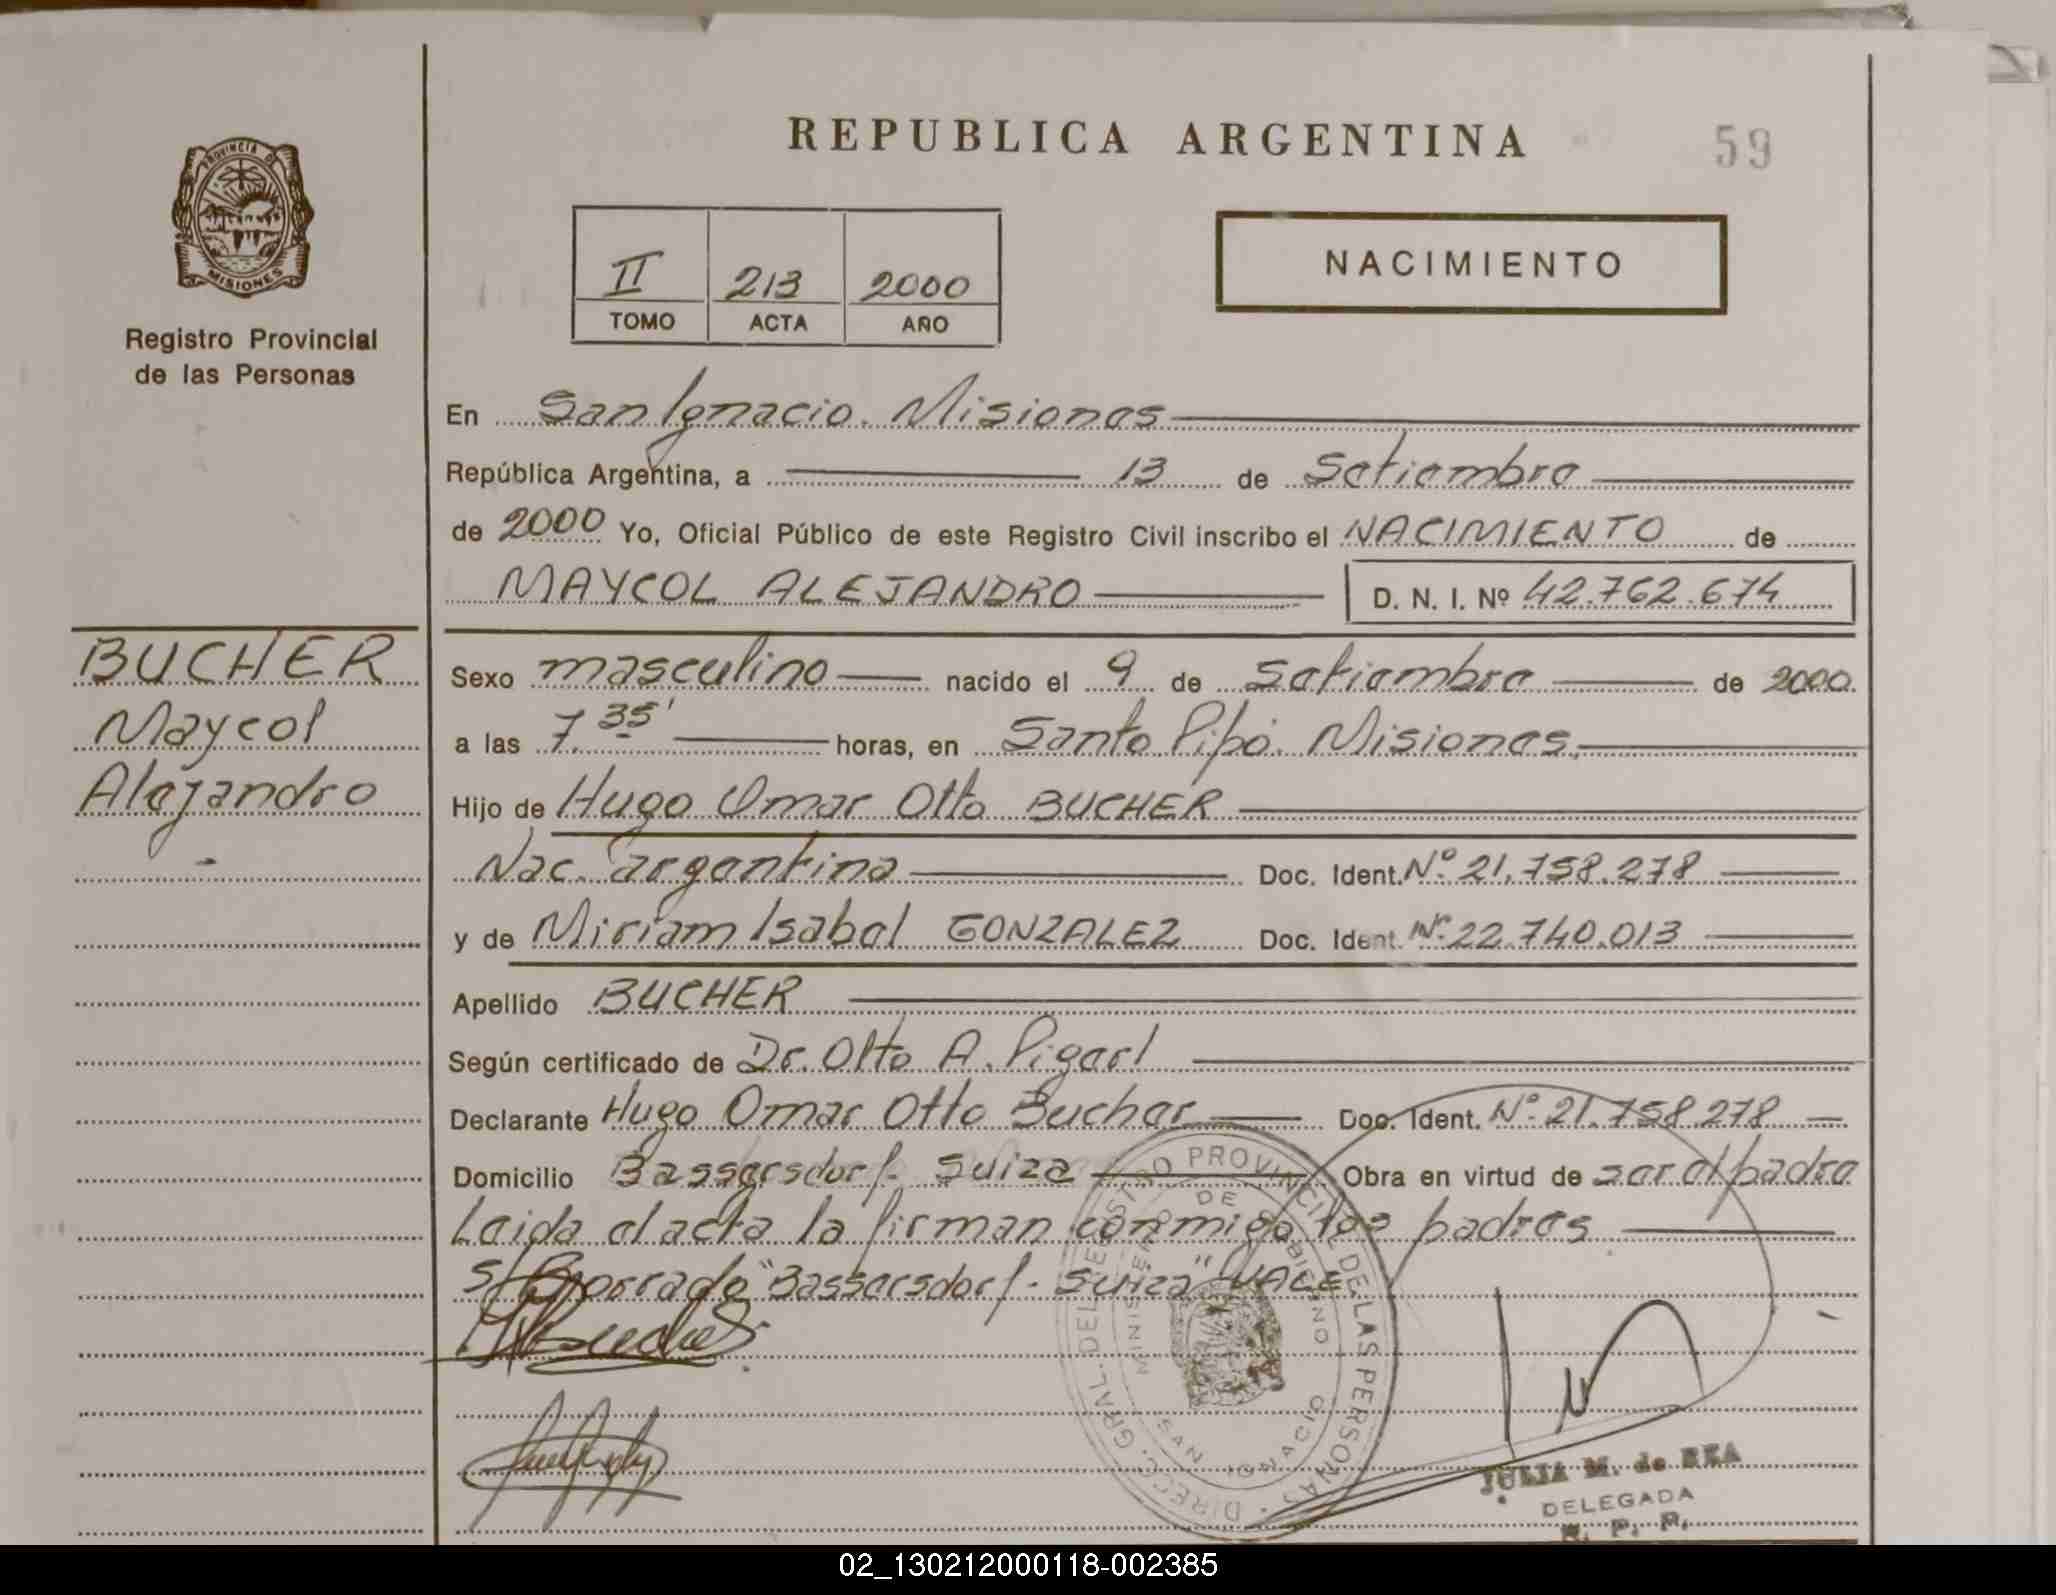 REPUBLICA ARGENTINA
59
PROVINCIA DE
MISIONES
Registro Provincial
de las Personas
II 213 2000
TOMO ACTA AÑO
NACIMIENTO
En San Ignacio. Misiones
República Argentina, a 13 de Setiembre
de 2000 Yo, Oficial Público de este Registro Civil inscribo el NACIMIENTO de
MAYCOL ALEJANDRO D. N. I. Nº 42.762.674
BUCHER
Maycol
Alejandro
Sexo masculino nacido el 9 de Setiembre de 2000
a las 7.35' horas, en Santo Pipó. Misiones.
Hijo de Hugo Omar Otto BUCHER
Nac. argentina Doc. Ident. Nº 21.758.278
y de Miriam Isabel GONZALEZ Doc. Ident. Nº 22.740.013
Apellido BUCHER
Según certificado de Dr. Otto A. Pigerl
Declarante Hugo Omar Otto Bucher Doc. Ident. Nº 21.758.278
Domicilio Bassersdorf. Suiza Obra en virtud de ser el padre
Leida el acta la firman conmigo los padres
S/Borrado "Bassersdorf - Suiza" VALE.
DIREC. GRAL. DEL REGISTRO PROVINCIAL DE LAS PERSONAS
MINISTERIO DE GOBIERNO
SAN IGNACIO
JULIA M. de REA
DELEGADA
R. P. P.
02_130212000118-002385